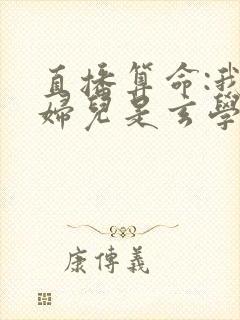 直播算命:我
婦兒是玄學
康傳義